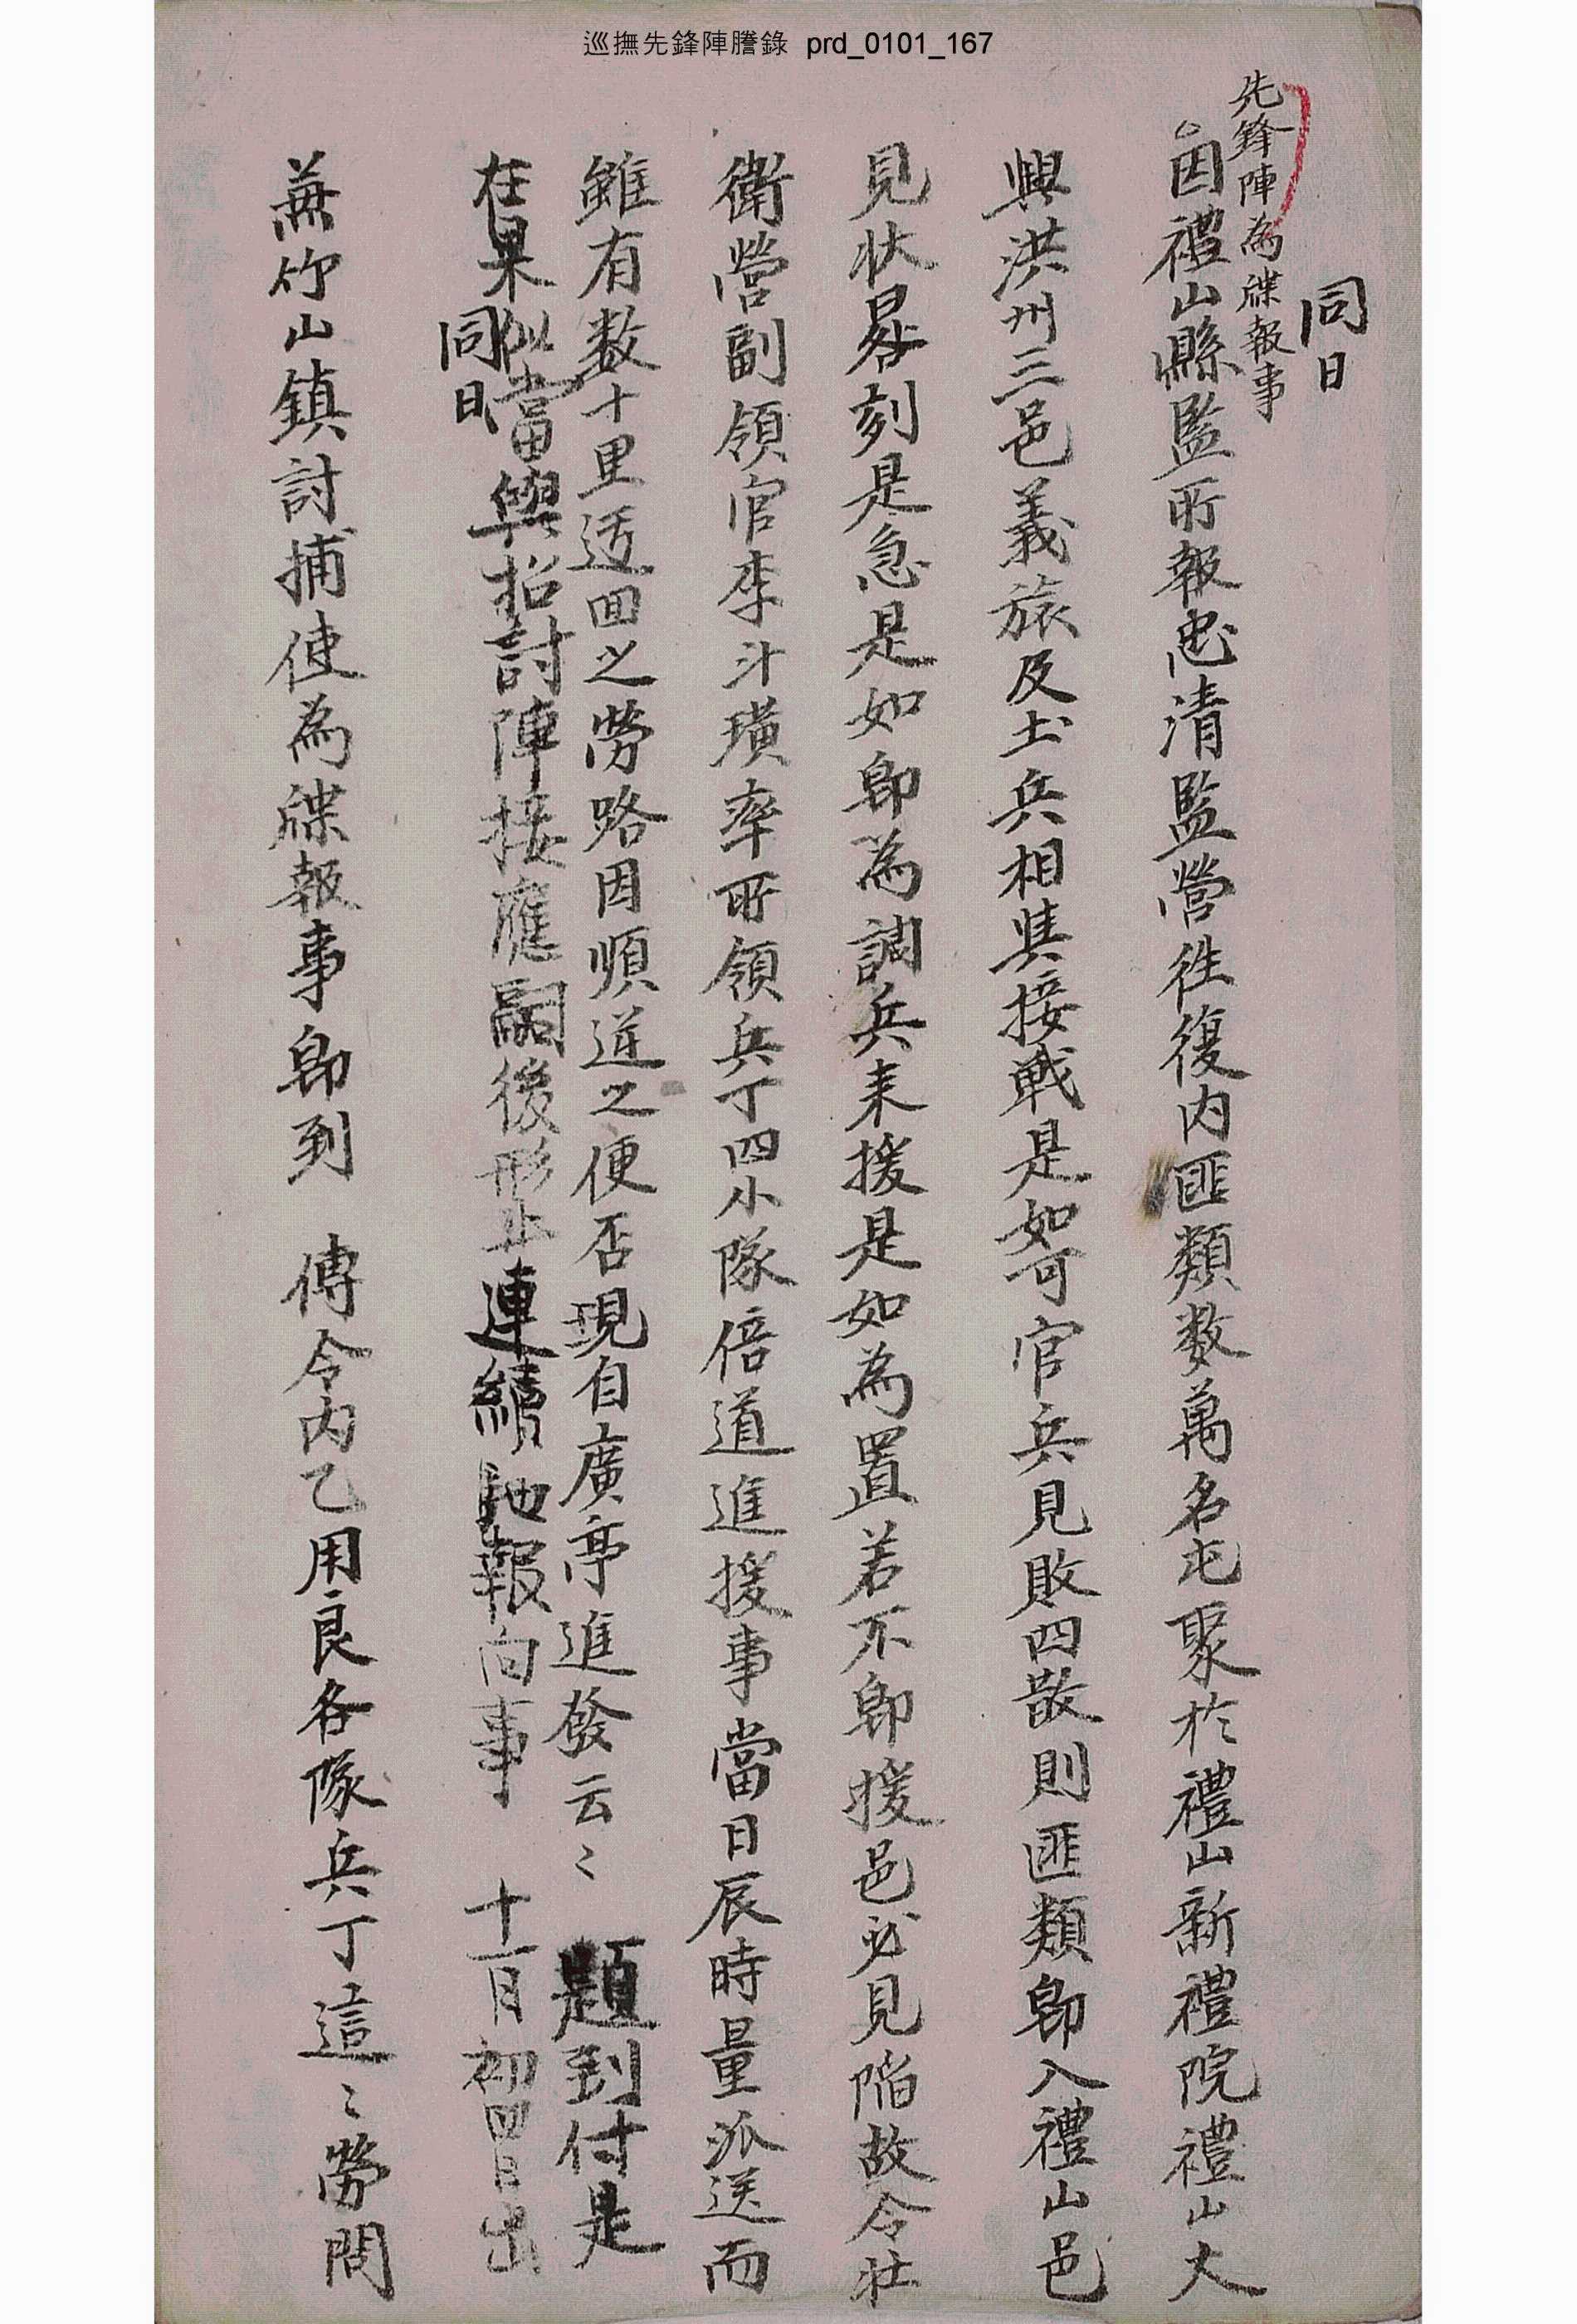 巡撫先鋒陣謄錄 prd_0101_167
同日
先鋒陣為牒報事
因禮山縣監所報忠清監營往復內匪類数萬名屯聚於禮山新禮院禮山大
興洪州三邑義旅及土兵相與接戦是如可官兵見敗四散則匪類卽入禮山邑
見状晷刻是急是如卽為調兵来援是如為置若不卽援邑必見陷故令壮
衛營副領官李斗璜率所領兵丁四小隊倍道進援事當日辰時量派送而
雖有数十里迃回之勞路因順逆之便否現自廣亭進發云〻 題到付是
在果似當與招討陣接應嗣後形止連續馳報向事 十一月初四日出
同日
兼竹山鎮討捕使為牒報事卽到 傳令內乙用良各隊兵丁這〻勞問